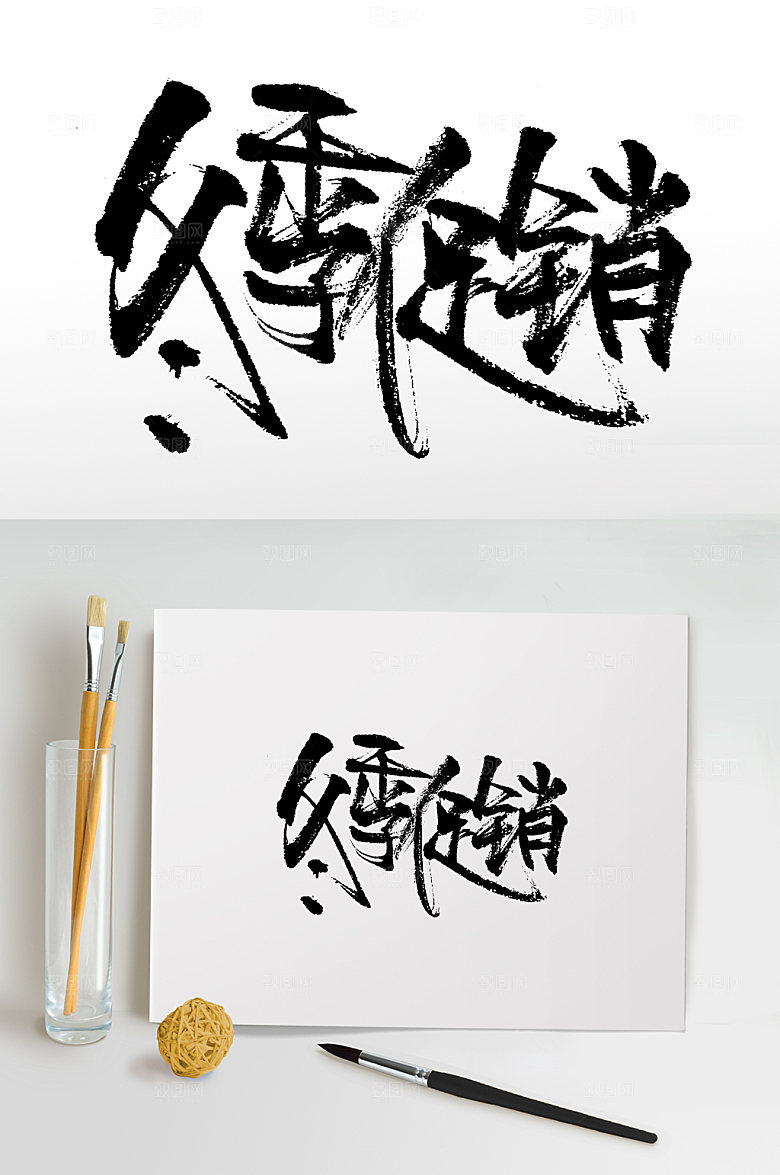 冬季促销
冬季促销